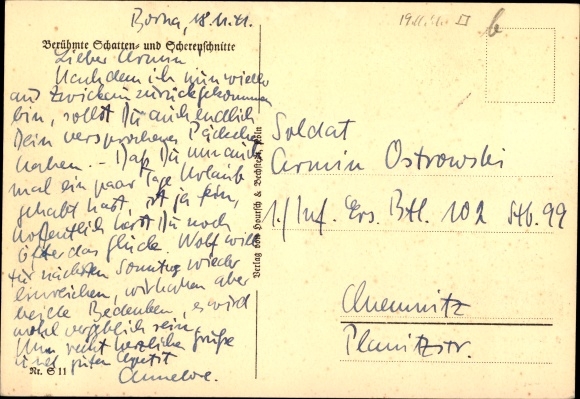 Borna, 18.11.41.
Berühmte Schatten- und Scherenschnitte
Lieber Armin
Nachdem ich nun wieder
aus Zwickau zurückgekommen
bin, sollst Du auch endlich
Dein versprochenes Päckchen
haben. - Daß Du nun auch
mal ein paar Tage Urlaub
gehabt hast, ist ja fein,
hoffentlich hast Du noch
öfter das Glück. Wolf will
für nächsten Sonntag wieder
einreichen, wir haben aber
Bedenken, es wird
wohl vergeblich sein.
Nun recht herzliche Grüße
und guten Appetit
Annelore.
Nr. S 11
Verlag von Houtsch & Bechstedt, Köln
Soldat
Armin Ostrowski
1./Inf. Ers. Btl. 102 Stb. 99
Chemnitz
Planitzstr.